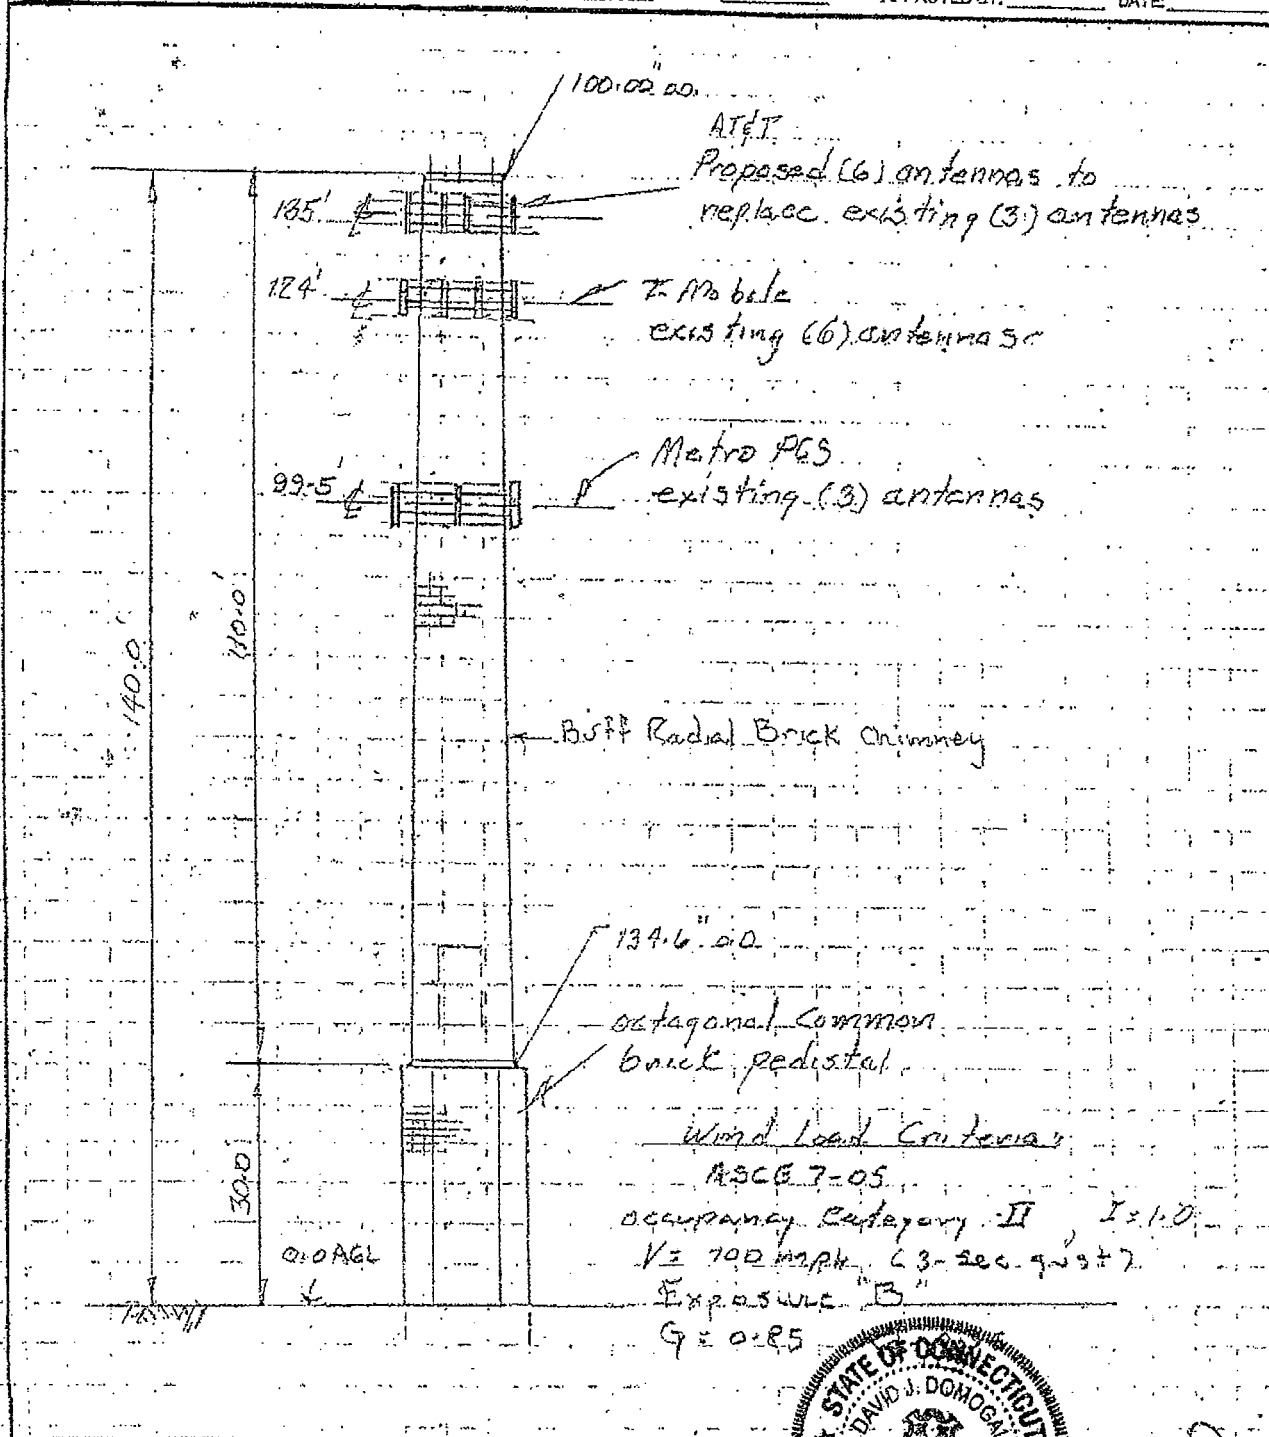 DATE
100.00" OD.
AT&T
Proposed (6) antennas to
replace existing (3) antennas
135'
124'
T-Mobile
existing (6) antennas
Metro PCS
existing (3) antennas
99.5'
140.0'
110.0'
Buff Radial Brick Chimney
134.6" OD
octagonal Common
brick pedistal
30.0'
0.0 AGL
Wind Load Criteria:
ASCE 7-05
occupancy Category II, I=1.0
V= 100 mph (3-sec gust)
Exposure "B"
G = 0.85
STATE OF CONNECTICUT
DAVID J.